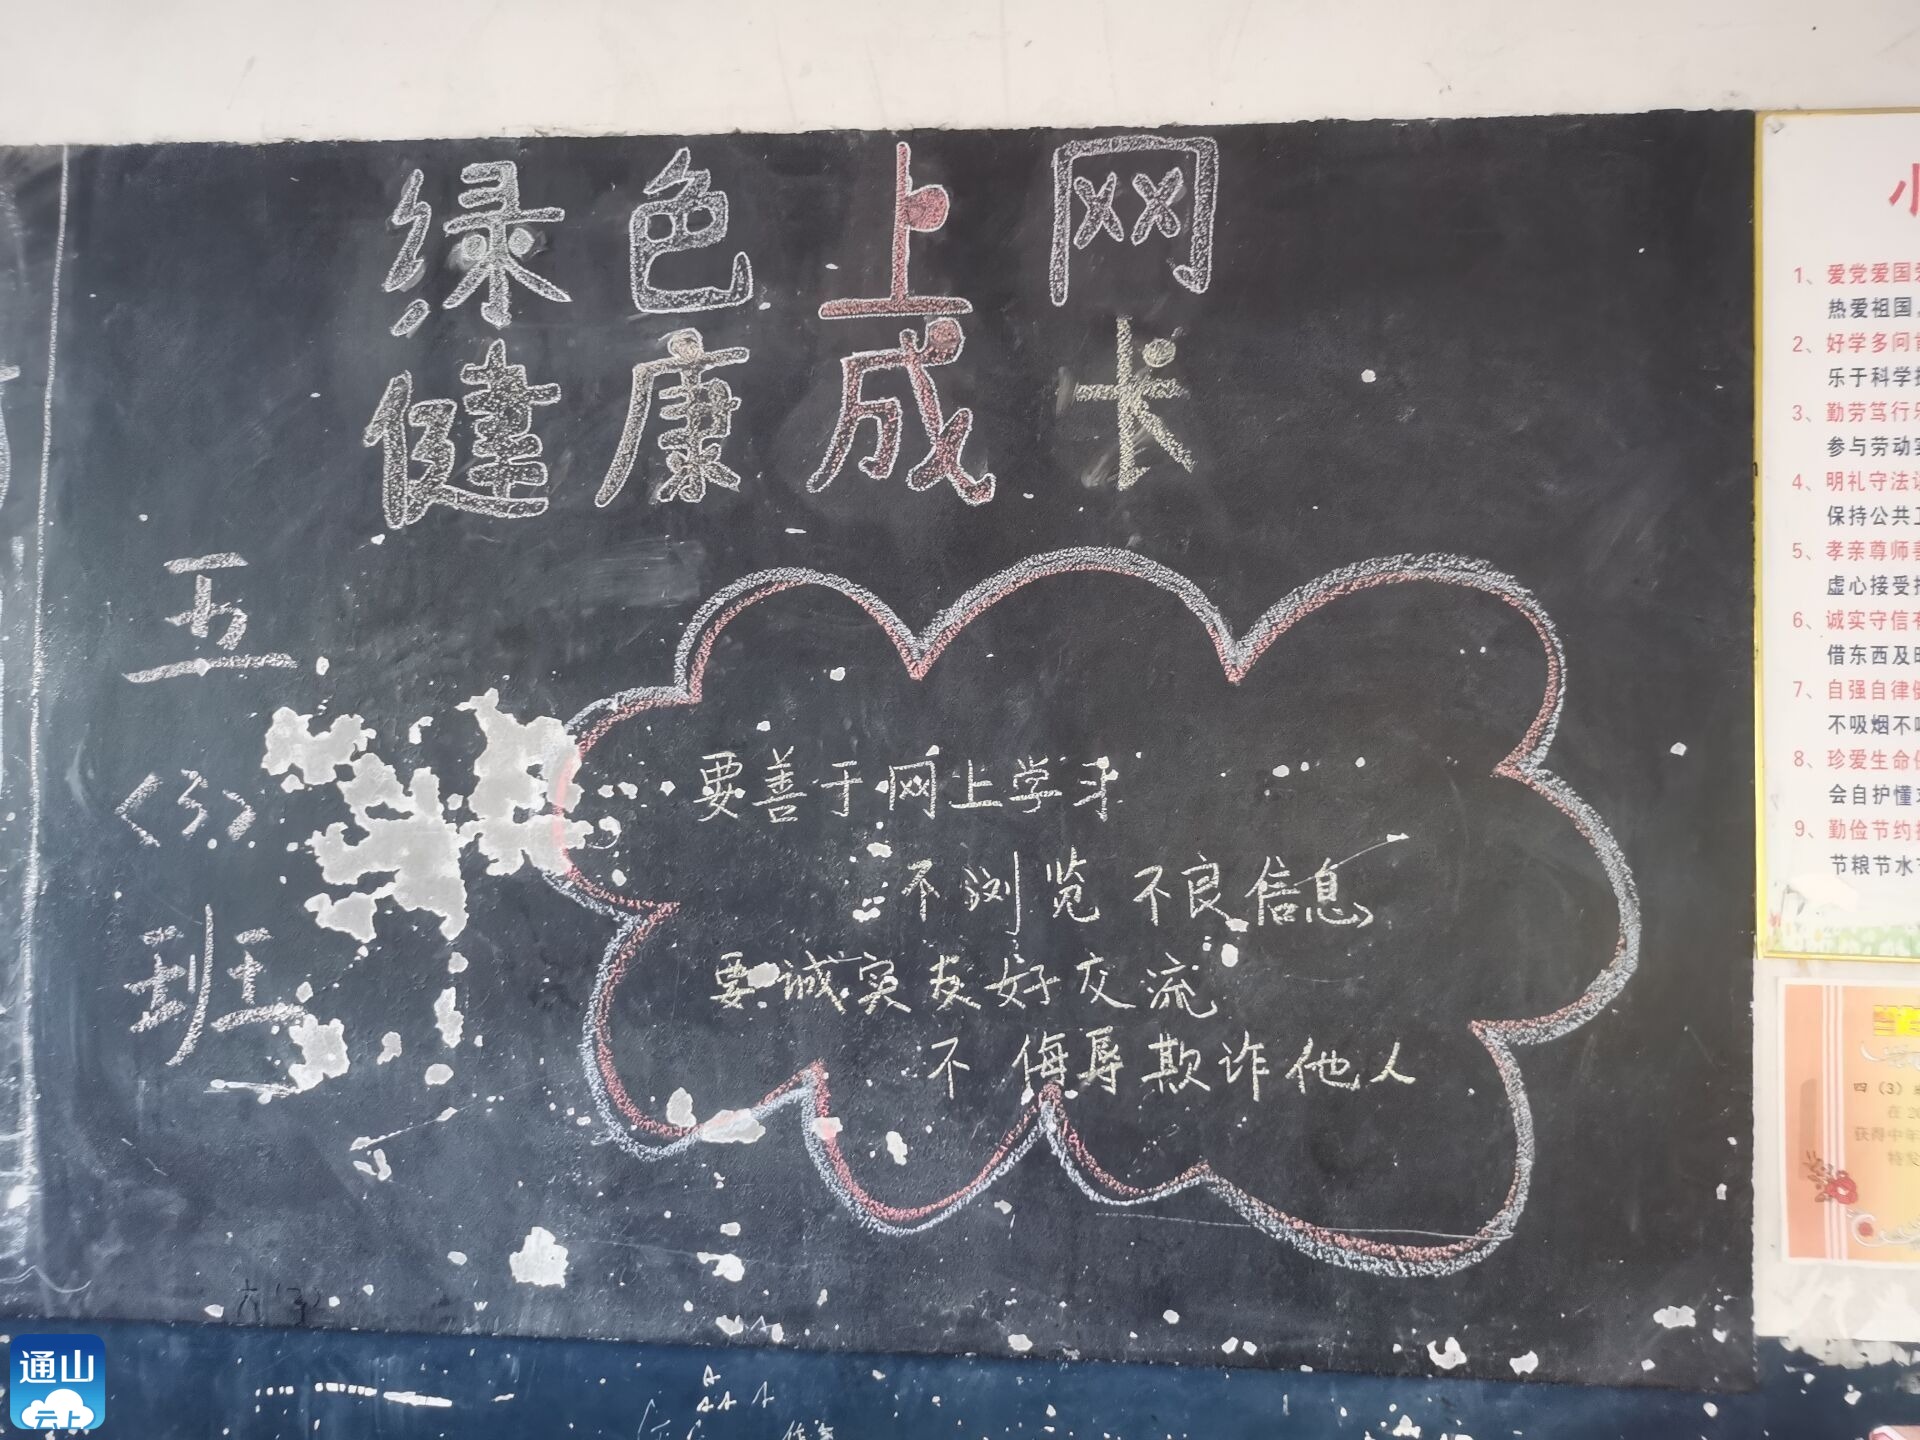 绿色上网
健康成长
五
(3)
班
要善于网上学习
不浏览不良信息
要诚实友好交流
不侮辱欺诈他人
六(3)
小
1、爱党爱国
热爱祖国
2、好学多问
乐于科学
3、勤劳笃行
参与劳动
4、明礼守法
保持公共
5、孝亲尊师
虚心接受
6、诚实守信
借东西及
7、自强自律
不吸烟不
8、珍爱生命
会自护懂
9、勤俭节约
节粮节水
四（3）
在20
获得中年
特发
通山
云上